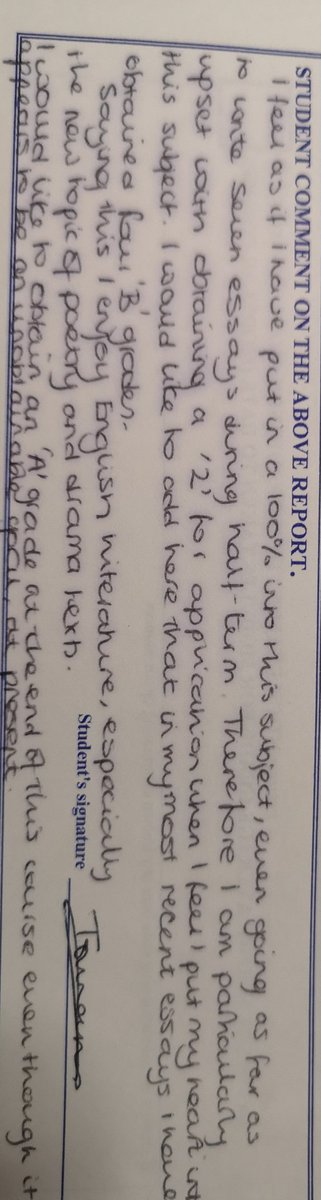 STUDENT COMMENT ON THE ABOVE REPORT.
I feel as if I have put in a 100% into this subject, even going as far as
to write seven essays during half-term. Therefore I am particularly
upset with obtaining a '2' for application when I feel I put my heart into
this subject. I would like to add here that in my most recent essays I have
obtained four 'B' grades.
Saying this I enjoy English literature, especially
the new topic of poetry and drama texts.
Student's signature
I would like to obtain an 'A' grade at the end of this course even though it
appears to be an unobtainable goal, at present.